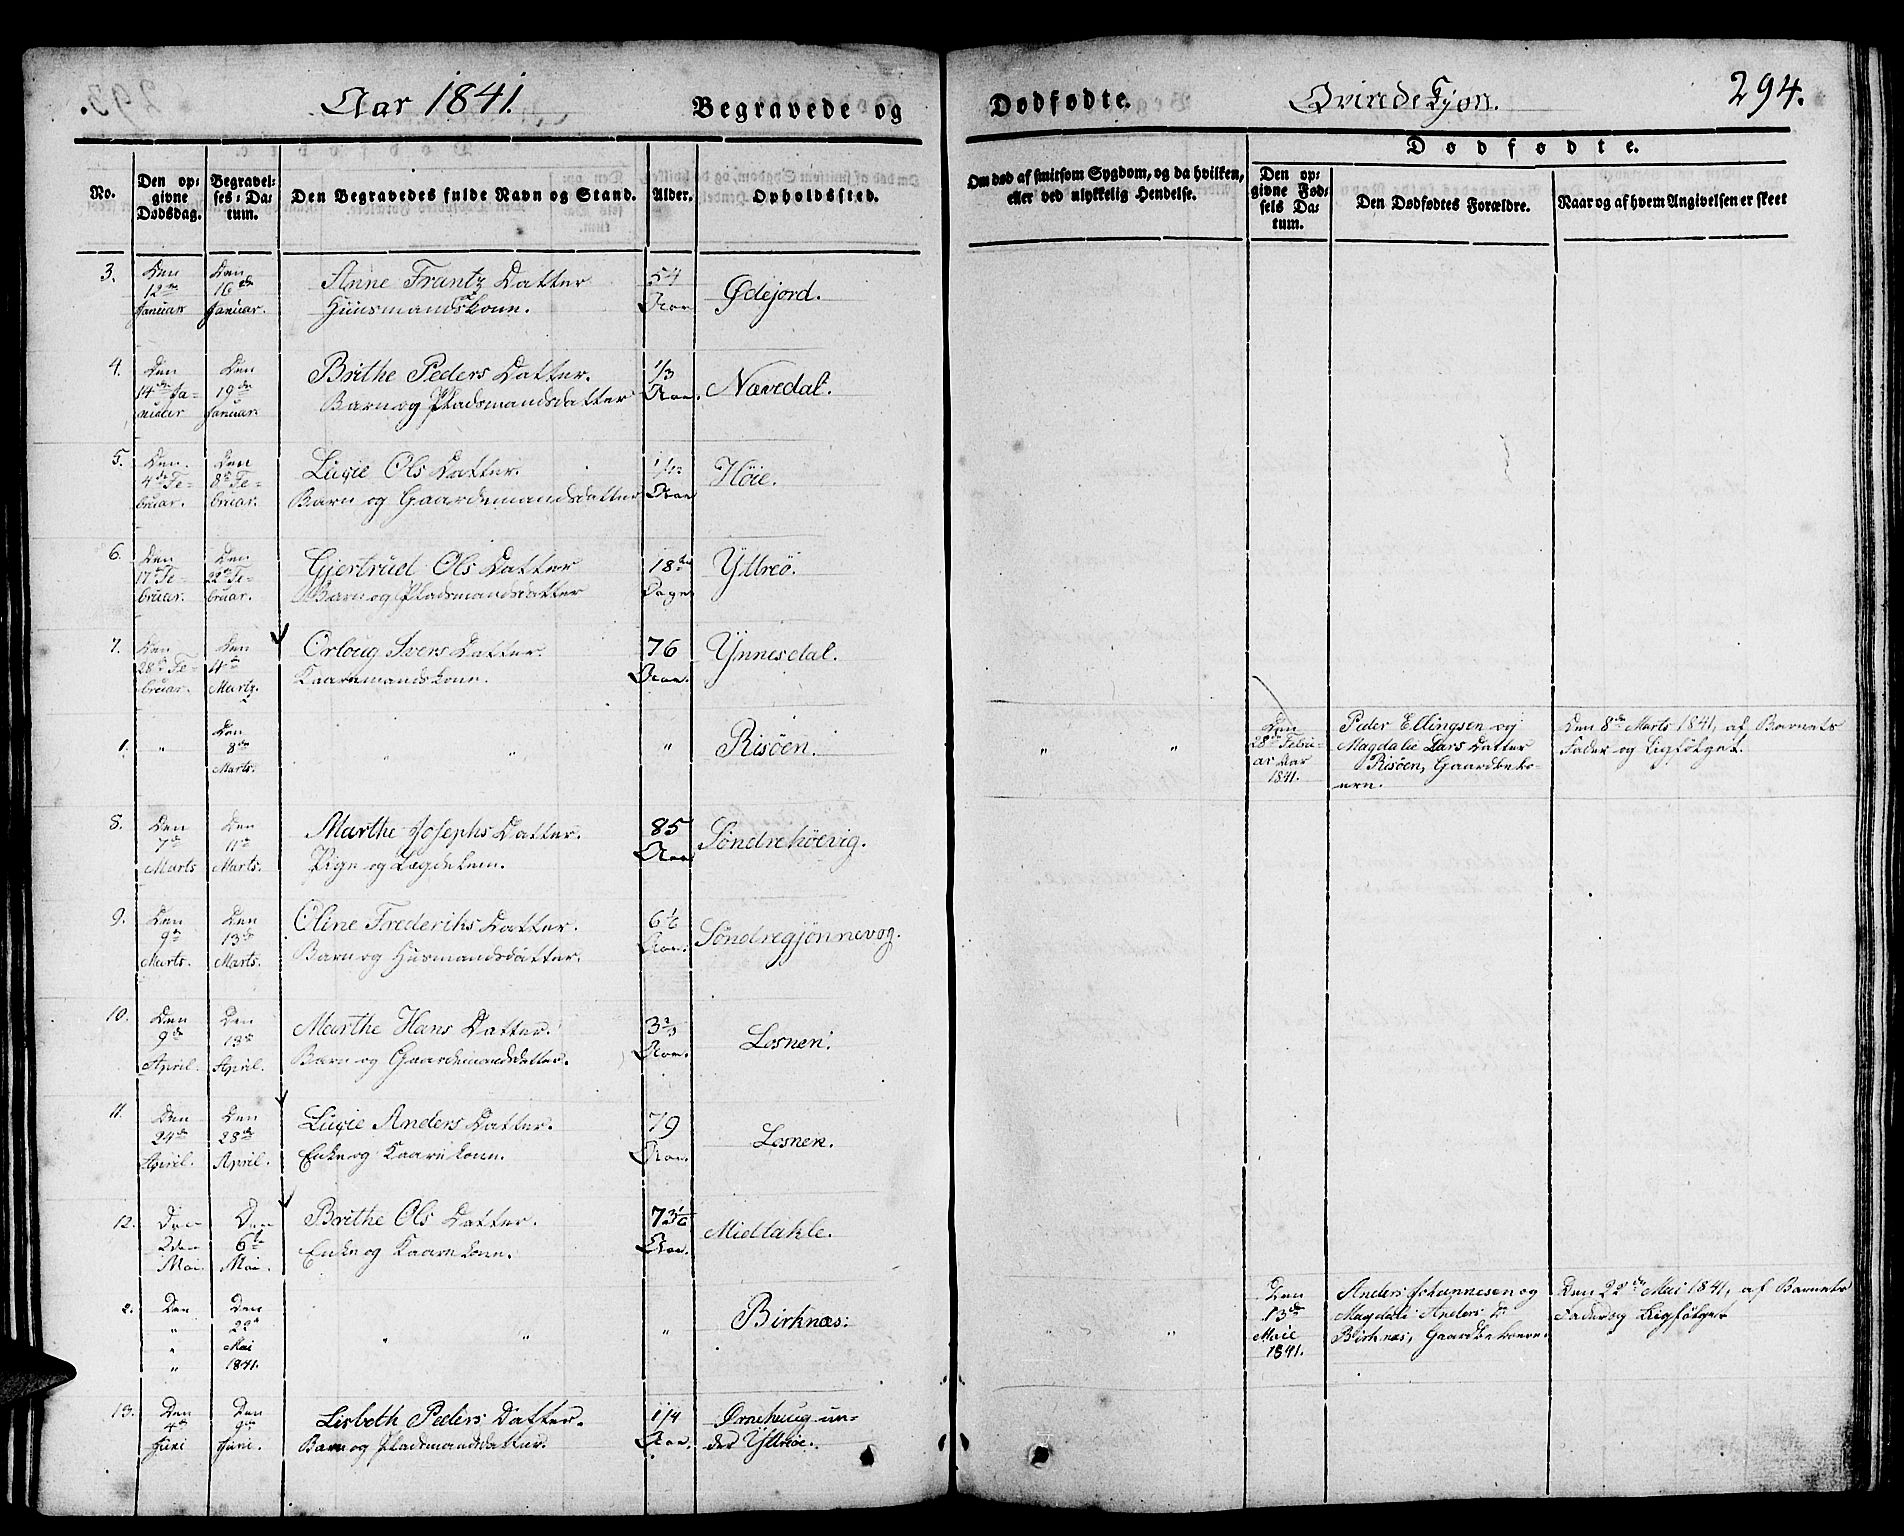 Aar 1841.
Begravede og
Dødfødte.
Qvindekjøn.
294.
No.
Den op-
givne
Dødsdag.
Begravel-
ses-Da-
tum.
Den Begravedes fulde Navn og Stand.
Alder.
Opholdssted.
Om død af smitsom Sygdom, og da hvilken,
eller ved ulykkelig Hendelse.
Dødfødte.
Den op-
givne Fød-
sels Da-
tum.
Den Dødfødtes Forældre.
Naar og af hvem Angivelsen er skeet
3.
Den
12te
Januar
Den
16de
Januar.
Anne Frantz Datter
Huusmandskone.
54
Aar
Ødejord.
4.
Den
14de Ja-
nuar
Den
19de
Januar.
Brithe Peders Datter.
Barn og Pladsmandsdatter
1/3
Aar.
Nævedal.
5.
Den
4de Fe-
bruar.
Den
8de Fe-
bruar.
Lucie Ols Datter.
Barn og Gaardemandsdatter
Aar
Høie.
6.
Den
17de Fe-
bruar.
Den
22de Fe-
bruar.
Gjertrud Ols Datter
Barn og Pladsmandsdatter
18
Dage
Yttreö.
7.
Den
28de Fe-
bruar.
Den
4de
Marts.
Orloug Ivers Datter.
Kaaremandskone.
76
Aar.
Ynnesdal.
1.
"
Den
8de
Marts.
"
"
Risöen.
"
"
Den
28de Febru-
ar Aar
1841.
Peder Ellingsen og
Magdalie Lars Datter
Risöen, Gaardbebo-
ern.
Den 8de Marts 1841, af Barnets
Fader og Ligfølget.
8.
Den
7de
Marts
Den
11te
Marts.
Marthe Josephs Datter.
Pige og Lægdelem.
85
Aar
Söndrehöevig.
9.
Den
9de
Marts.
Den
13de
Marts.
Oline Frederiks Datter.
Barn og Husmandsdatter.
6 1/6
Aar.
Söndregjönnevog.
10.
Den
9de
April.
Den
18de
April.
Marthe Hans Datter.
Barn og Gaardemandsdatter.
3 2/3
Aar.
Losnen.
11.
Den
24de
April.
Den
28de
April.
Lucie Anders Datter.
Enke og Kaarekone.
79
Aar.
Losnen.
12.
Den
2den
Mai.
Den
6te
Mai.
Brithe Ols Datter.
Enke og Kaarekone.
73 1/6
Aar.
Midtakle.
2.
Den
"
"
Den
22de
Mai
1841.
"
"
"
Birknæs.
"
"
Den
13de
Maie
1841.
Anders Johannesen og
Magdeli Anders D:
Birknæs, Gaardbeboere.
Den 22de Mai 1841, af Barnets
Fader og Ligfølget
13.
Den
4de
Juni
Den
9de
Juni.
Lisbeth Peders Datter.
Barn og Pladsmandsdatter.
1/4
Aar.
Ørnehaug un-
der Yttröe.